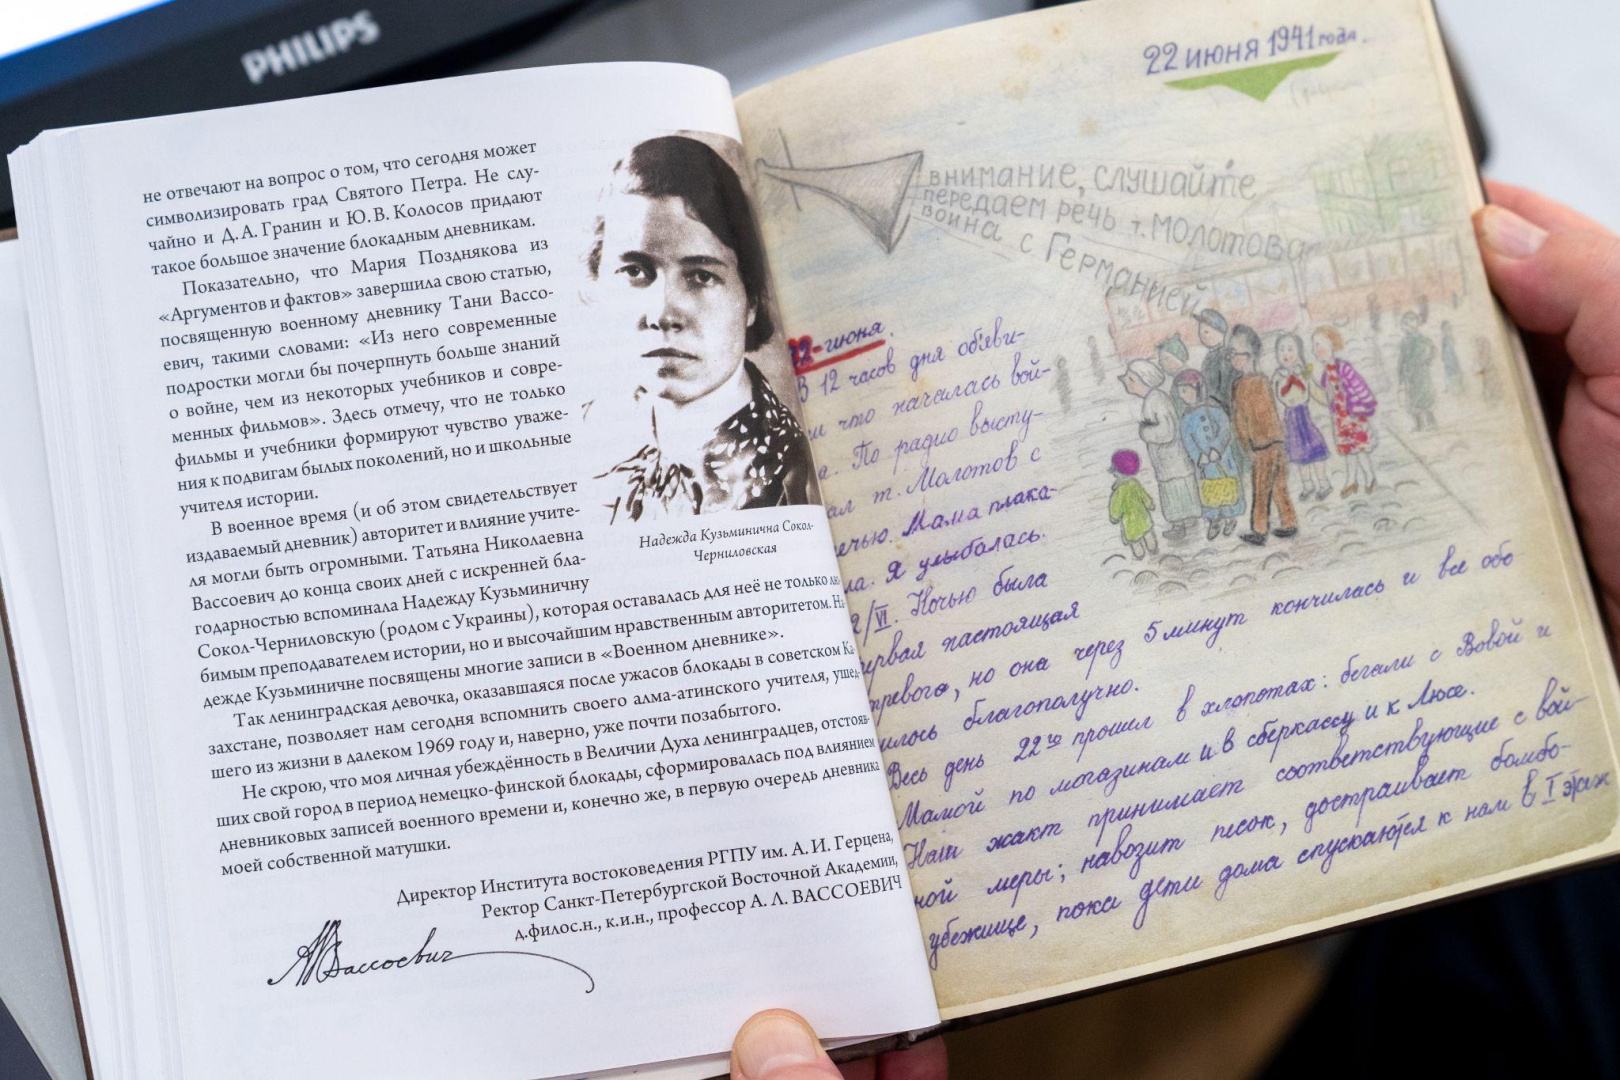 PHILIPS
не отвечают на вопрос о том, что сегодня может
символизировать град Святого Петра. Не слу-
чайно и Д. А. Гранин и Ю. В. Колосов придают
такое большое значение блокадным дневникам.
Показательно, что Мария Позднякова из
«Аргументов и фактов» завершила свою статью,
посвященную военному дневнику Тани Вассо-
евич, такими словами: «Из него современные
подростки могли бы почерпнуть больше знаний
о войне, чем из некоторых учебников и совре-
менных фильмов». Здесь отмечу, что не только
фильмы и учебники формируют чувство уваже-
ния к подвигам былых поколений, но и школьные
учителя истории.
В военное время (и об этом свидетельствует
издаваемый дневник) авторитет и влияние учите-
ля могли быть огромными. Татьяна Николаевна
Вассоевич до конца своих дней с искренней бла-
годарностью вспоминала Надежду Кузьминичну
Сокол-Черниловскую (родом с Украины), которая оставалась для неё не только лю-
бимым преподавателем истории, но и высочайшим нравственным авторитетом. На-
дежде Кузьминичне посвящены многие записи в «Военном дневнике».
Так ленинградская девочка, оказавшаяся после ужасов блокады в советском Ка-
захстане, позволяет нам сегодня вспомнить своего алма-атинского учителя, ушед-
шего из жизни в далеком 1969 году и, наверно, уже почти позабытого.
Не скрою, что моя личная убеждённость в Величии Духа ленинградцев, отстояв-
ших свой город в период немецко-финской блокады, сформировалась под влиянием
дневниковых записей военного времени и, конечно же, в первую очередь дневника
моей собственной матушки.
Директор Института востоковедения РГПУ им. А. И. Герцена,
Ректор Санкт-Петербургской Восточной Академии,
д.филос.н., к.и.н., профессор А. Л. ВАССОЕВИЧ
АВассоевич
Надежда Кузьминична Сокол-
Черниловская
22 июня 1941 года.
внимание, слушайте
передаем речь т. Молотова
война с Германией
22-июня.
В 12 часов дня объяви-
что началась вой-
а. По радио высту-
ал т. Молотов с
ечью. Мама плака-
ла. Я улыбалась.
2/VI. Ночью была
ервая настоящая
тревога, но она через 5 минут кончилась и все обо
шлось благополучно.
Весь день 22го прошел в хлопотах: бегали с Вовой и
Мамой по магазинам и в сберкассу и к Люсе.
Наш жакт принимает соответствующие с вой-
ной меры; навозит песок, достраивает бомбо-
убежище, пока дети дома спускаются к нам в I этаж